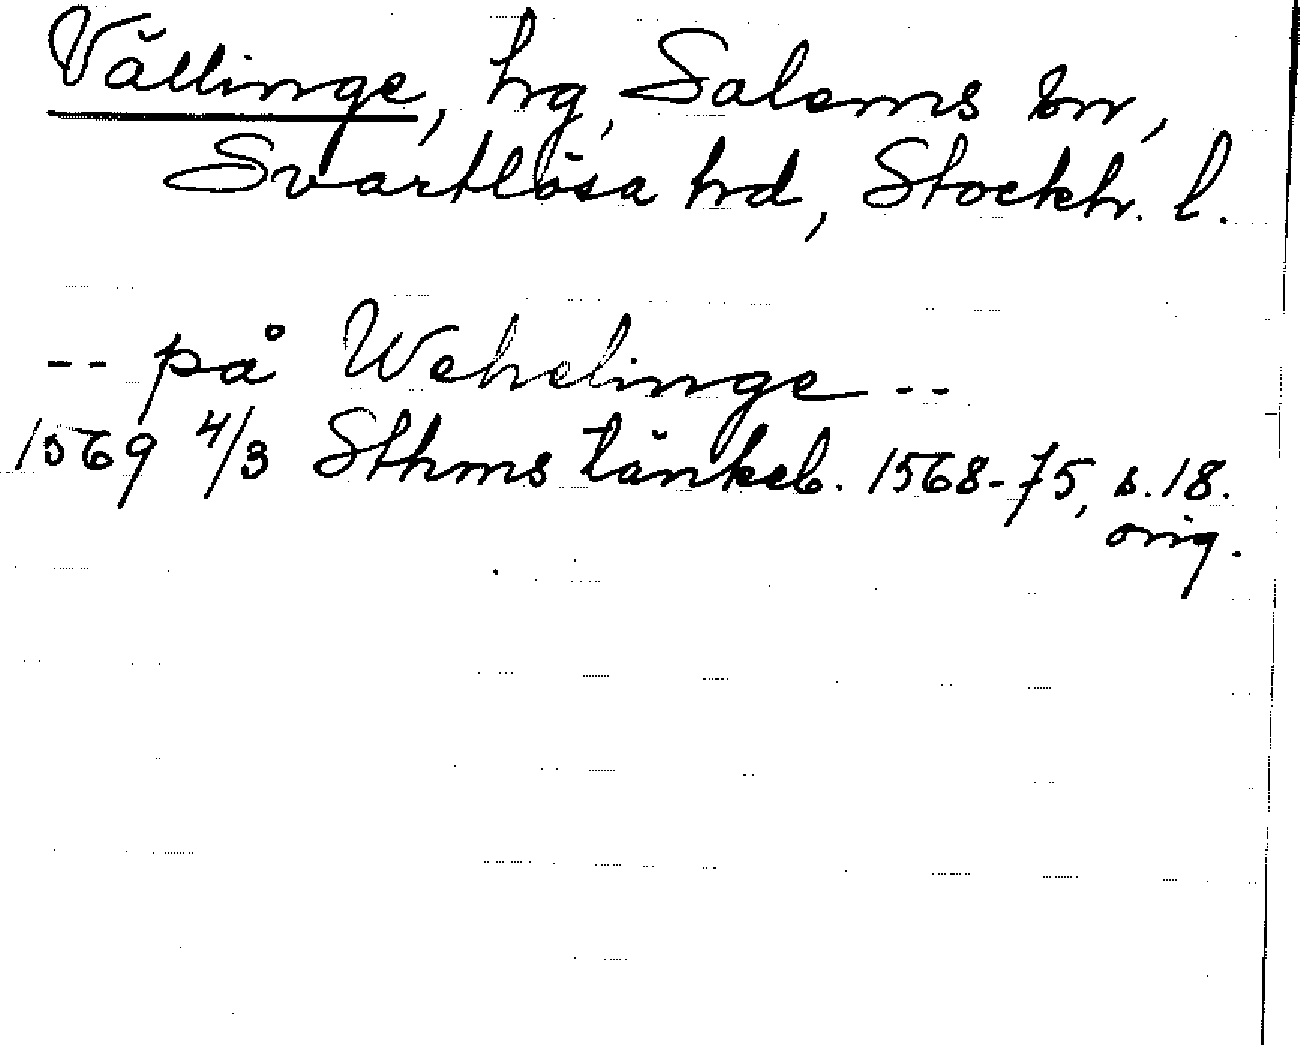 Vällinge, hg, Salems sn,
Svartlösa hd, Stockh. l.
-- på Wehelinge --
1569 4/3 Sthms tänkeb. 1568-75, s. 18.
orig.